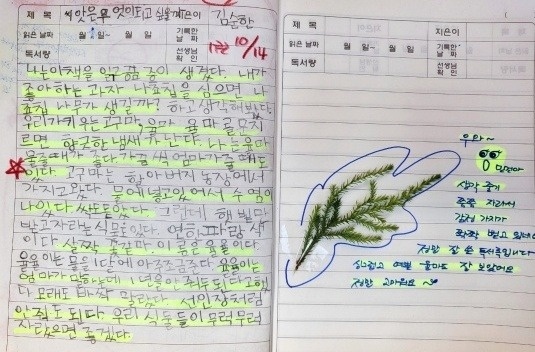 제 목 씨앗은 무엇이 되고 싶을까? 지은이 김순한
읽은 날짜 월 일~ 월 일 기록한 날짜
독서량 선생님 확인 10/14
나는 이 책을 읽고 꿈이 생겼다. 내가
좋아하는 과자 나쵸칩을 심으면 나
쵸칩 나무가 생길까? 하고 생각해봤다.
우리가 키우는 고구마, 율마 율마를 문지
르면 향긋한 냄새가 난다. 나는 율마
있다. 고구마는 할아버지 농장에서
가지고 왔다. 물에 넣고 있어서 수염이
나있다 싹도 났다. 그런데 햇빛만
받고 자라는 식물도 있다. 연한 파랑색
이다 살짝 죽같다 이름은 율율이다
율율이는 물을 1달에 아주 조금 준다.
엄마가 말하는데 1년 물 안 줘도 된다고 했
다 모래도 바싹 말랐다. 선인장처럼
안 줘도 된다. 우리 식물들이 무럭무럭
자랐으면 좋겠다.
제 목 지은이
읽은 날짜 월 일~ 월 일 기록한 날짜
독서량 선생님 확인
우와~
생각 줄기
쭉쭉 자라서
정말 잘 쓴 독서록입니다
싱그럽고 예쁜 율마도 잘 보았어요
정말 고마워요~